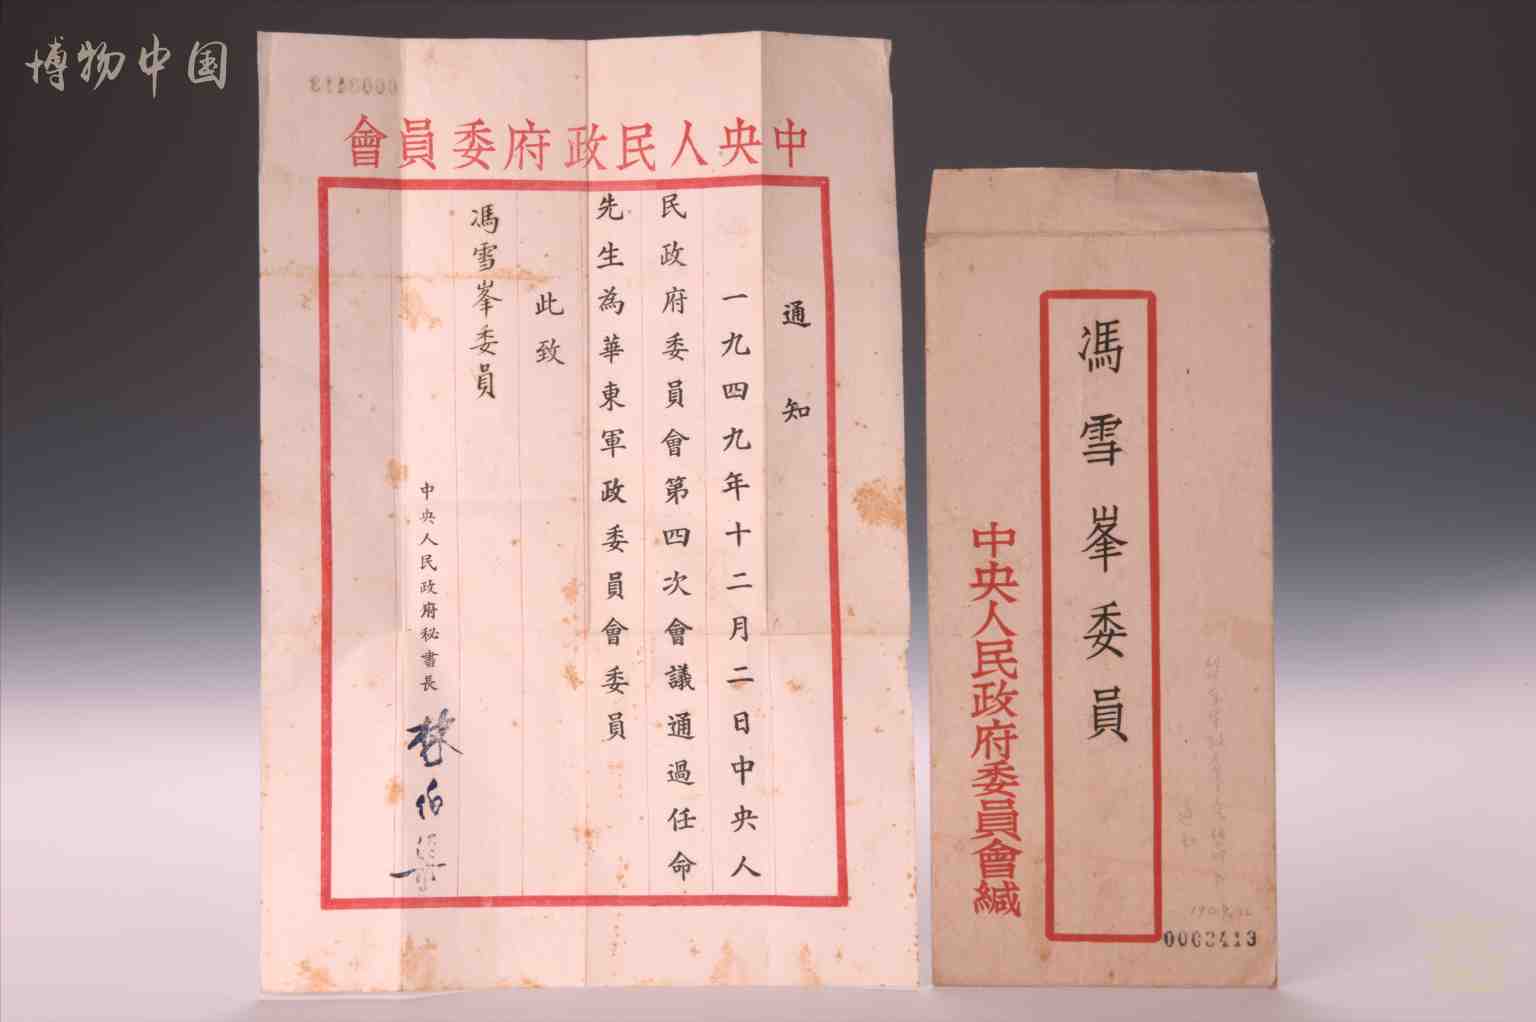 博物中国
中央人民政府委員會
通知
一九四九年十二月二日中央人
民政府委員會第四次會議通過任命
先生為華東軍政委員會委員
此致
馮雪峯委員
中央人民政府秘書長
林伯渠
馮雪峯委員
中央人民政府委員會緘
0003413